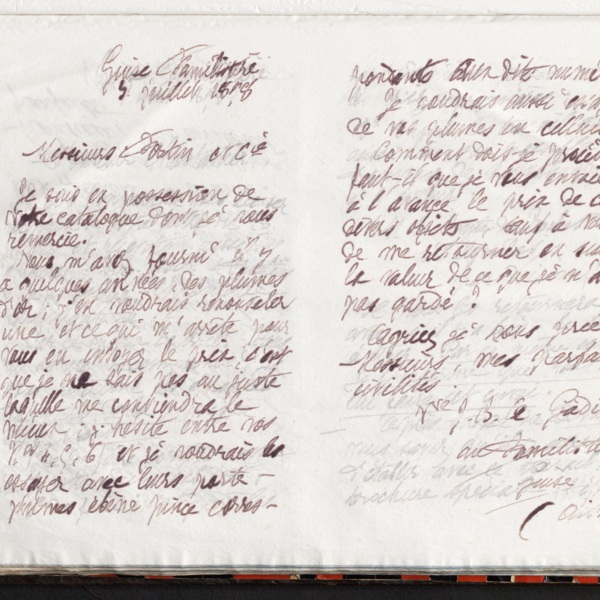 Guise Familistère
9 juillet 1898
Messieurs Fortin et Cie
Je suis en possession de
votre catalogue dont je vous
remercie.
Vous m'avez fourni il y
a quelques années, des plumes
d'or; j'en voudrais renouveler
une et ce qui m'arrête pour
vous en envoyer le prix c'est
que je ne sais pas au juste
laquelle me conviendra le
mieux : j'hésite entre vos
Nos 4, 5, 6 et je voudrais les
essayer avec leurs porte-
plumes ébène pince corres-
pondants aux dits numé
Je voudrais aussi
de vos plumes en
Comment dois-je procé
faut-il que je vous envoie
à l'avance le prix de c
divers objets
de me retourner en
la valeur de ce que je n'
pas gardé.
Agréez je vous prie
Messieurs, mes parfai
civilités
Vve J. B. A. Godi
au Familis
Guise
(Ais